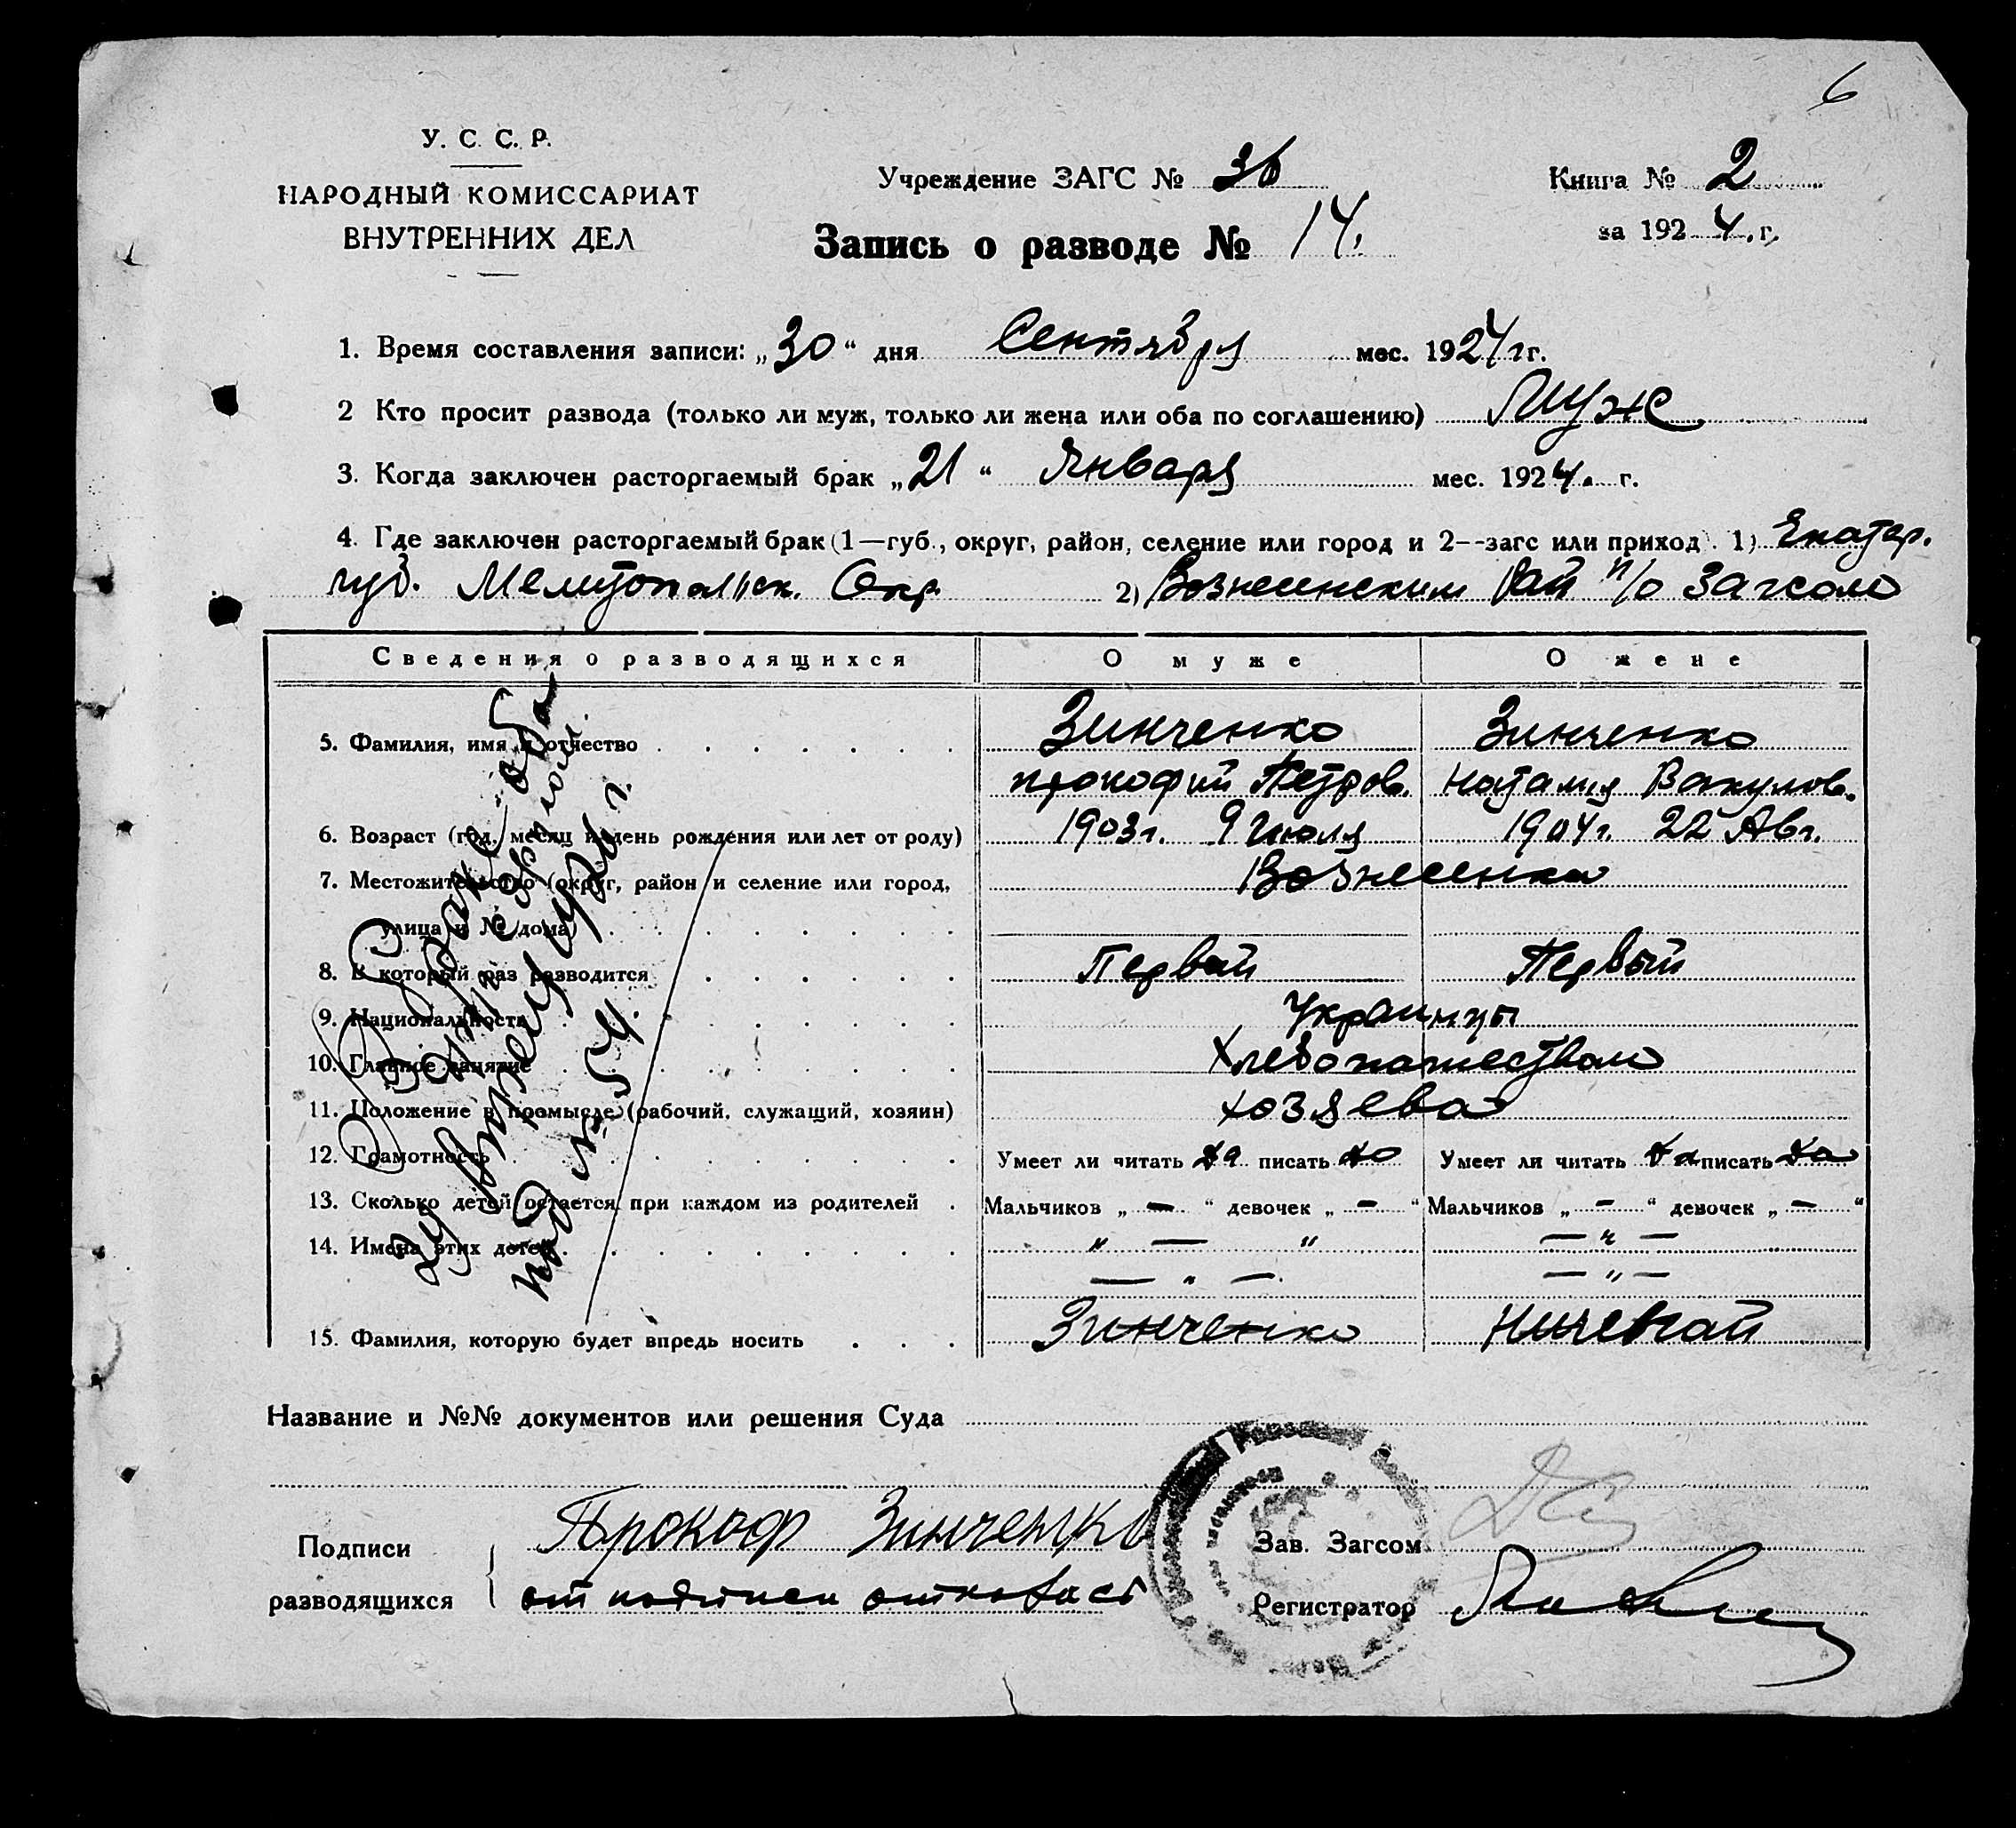 6
У. С. С. Р.
НАРОДНЫЙ КОМИССАРИАТ
ВНУТРЕННИХ ДЕЛ
Учреждение ЗАГС № 36
Запись о разводе № 14.
Книга № 2
за 1924. г.
1. Время составления записи: „30“ дня Сентября мес. 1924 г.
2 Кто просит развода (только ли муж, только ли жена или оба по соглашению) Муж
3. Когда заключен расторгаемый брак „21“ Января мес. 1924. г.
4. Где заключен расторгаемый брак (1—губ., округ, район, селение или город и 2--загс или приход). 1) Екатер.
губ. Мелитопольск. Окр. 2) Вознесенским Рай п/о Загсом
Сведения о разводящихся О муже О жене
5. Фамилия, имя и отчество Зинченко Зинченко
Прокофий Петров. Наталия Вакулов.
6. Возраст (год, месяц и день рождения или лет от роду) 1903г. 9 Июля 1904г. 22 Авг.
7. Местожительство (округ, район и селение или город, Вознесенка
улица и № дома)
8. В который раз разводится Первый Первый
9. Национальность Украинцы
10. Главное занятие Хлебопашеством
11. Положение в промысле (рабочий, служащий, хозяин) хозяева
12. Грамотность Умеет ли читать да писать да Умеет ли читать да писать да
13. Сколько детей остается при каждом из родителей Мальчиков „ — “ девочек „ — “ Мальчиков „ — “ девочек „ — “
14. Имена этих детей „ — “ — „ —
— „ — — „ —
15. Фамилия, которую будет впредь носить Зинченко Ничевай
О браке
под № 54.
Название и №№ документов или решения Суда
Подписи
разводящихся
Прокоф Зинченко
от подписи отказась
Зав. Загсом
Регистратор